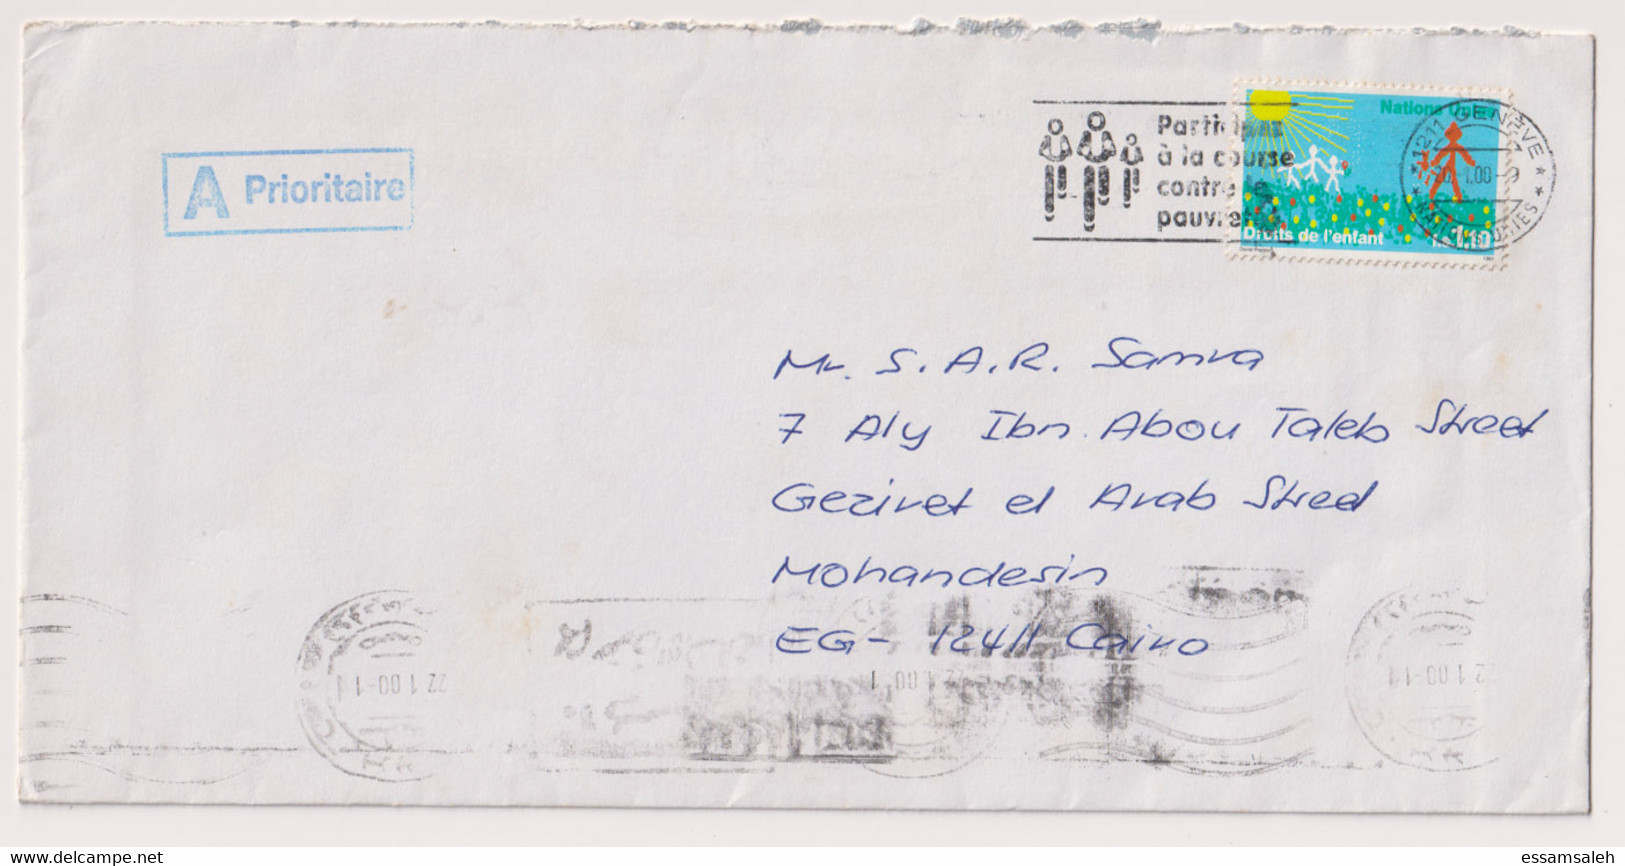 A Prioritaire
Participez
à la course
contre la
pauvreté
Nations Unies
Droits de l'enfant
1.10
1211 GENÈVE
1.00-9
Mr. S. A. R. Samra
7 Aly Ibn Abou Taleb Street
Geziret el Arab Street
Mohandesin
EG- 12411 Cairo
22 1.00-11
22 1.00-1
2 1.00-11
delcampe.net
essamsaleh